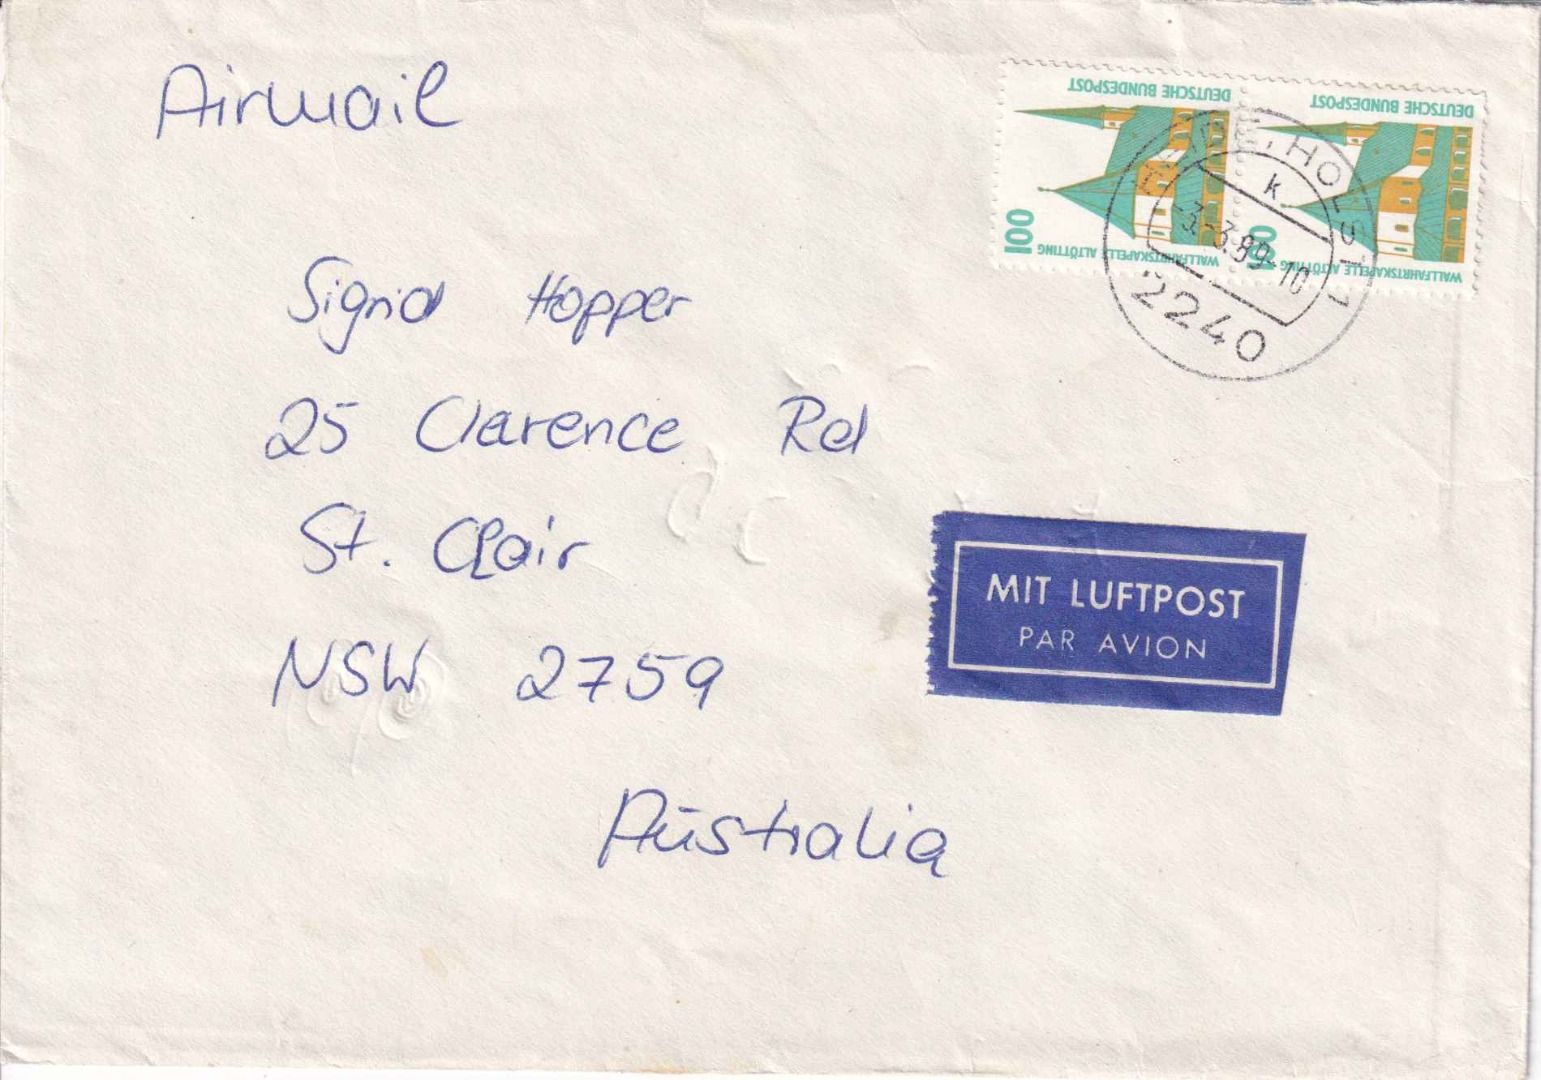 Airmail
DEUTSCHE BUNDESPOST
100
WALLFAHRTSKAPELLE ALTÖTTING
DEUTSCHE BUNDESPOST
100
WALLFAHRTSKAPELLE ALTÖTTING
HOLST 1
k
-3.-3.89-10
2240
Sigrid Hopper
25 Clarence Rd
St. Clair
NSW 2759
Australia
MIT LUFTPOST
PAR AVION